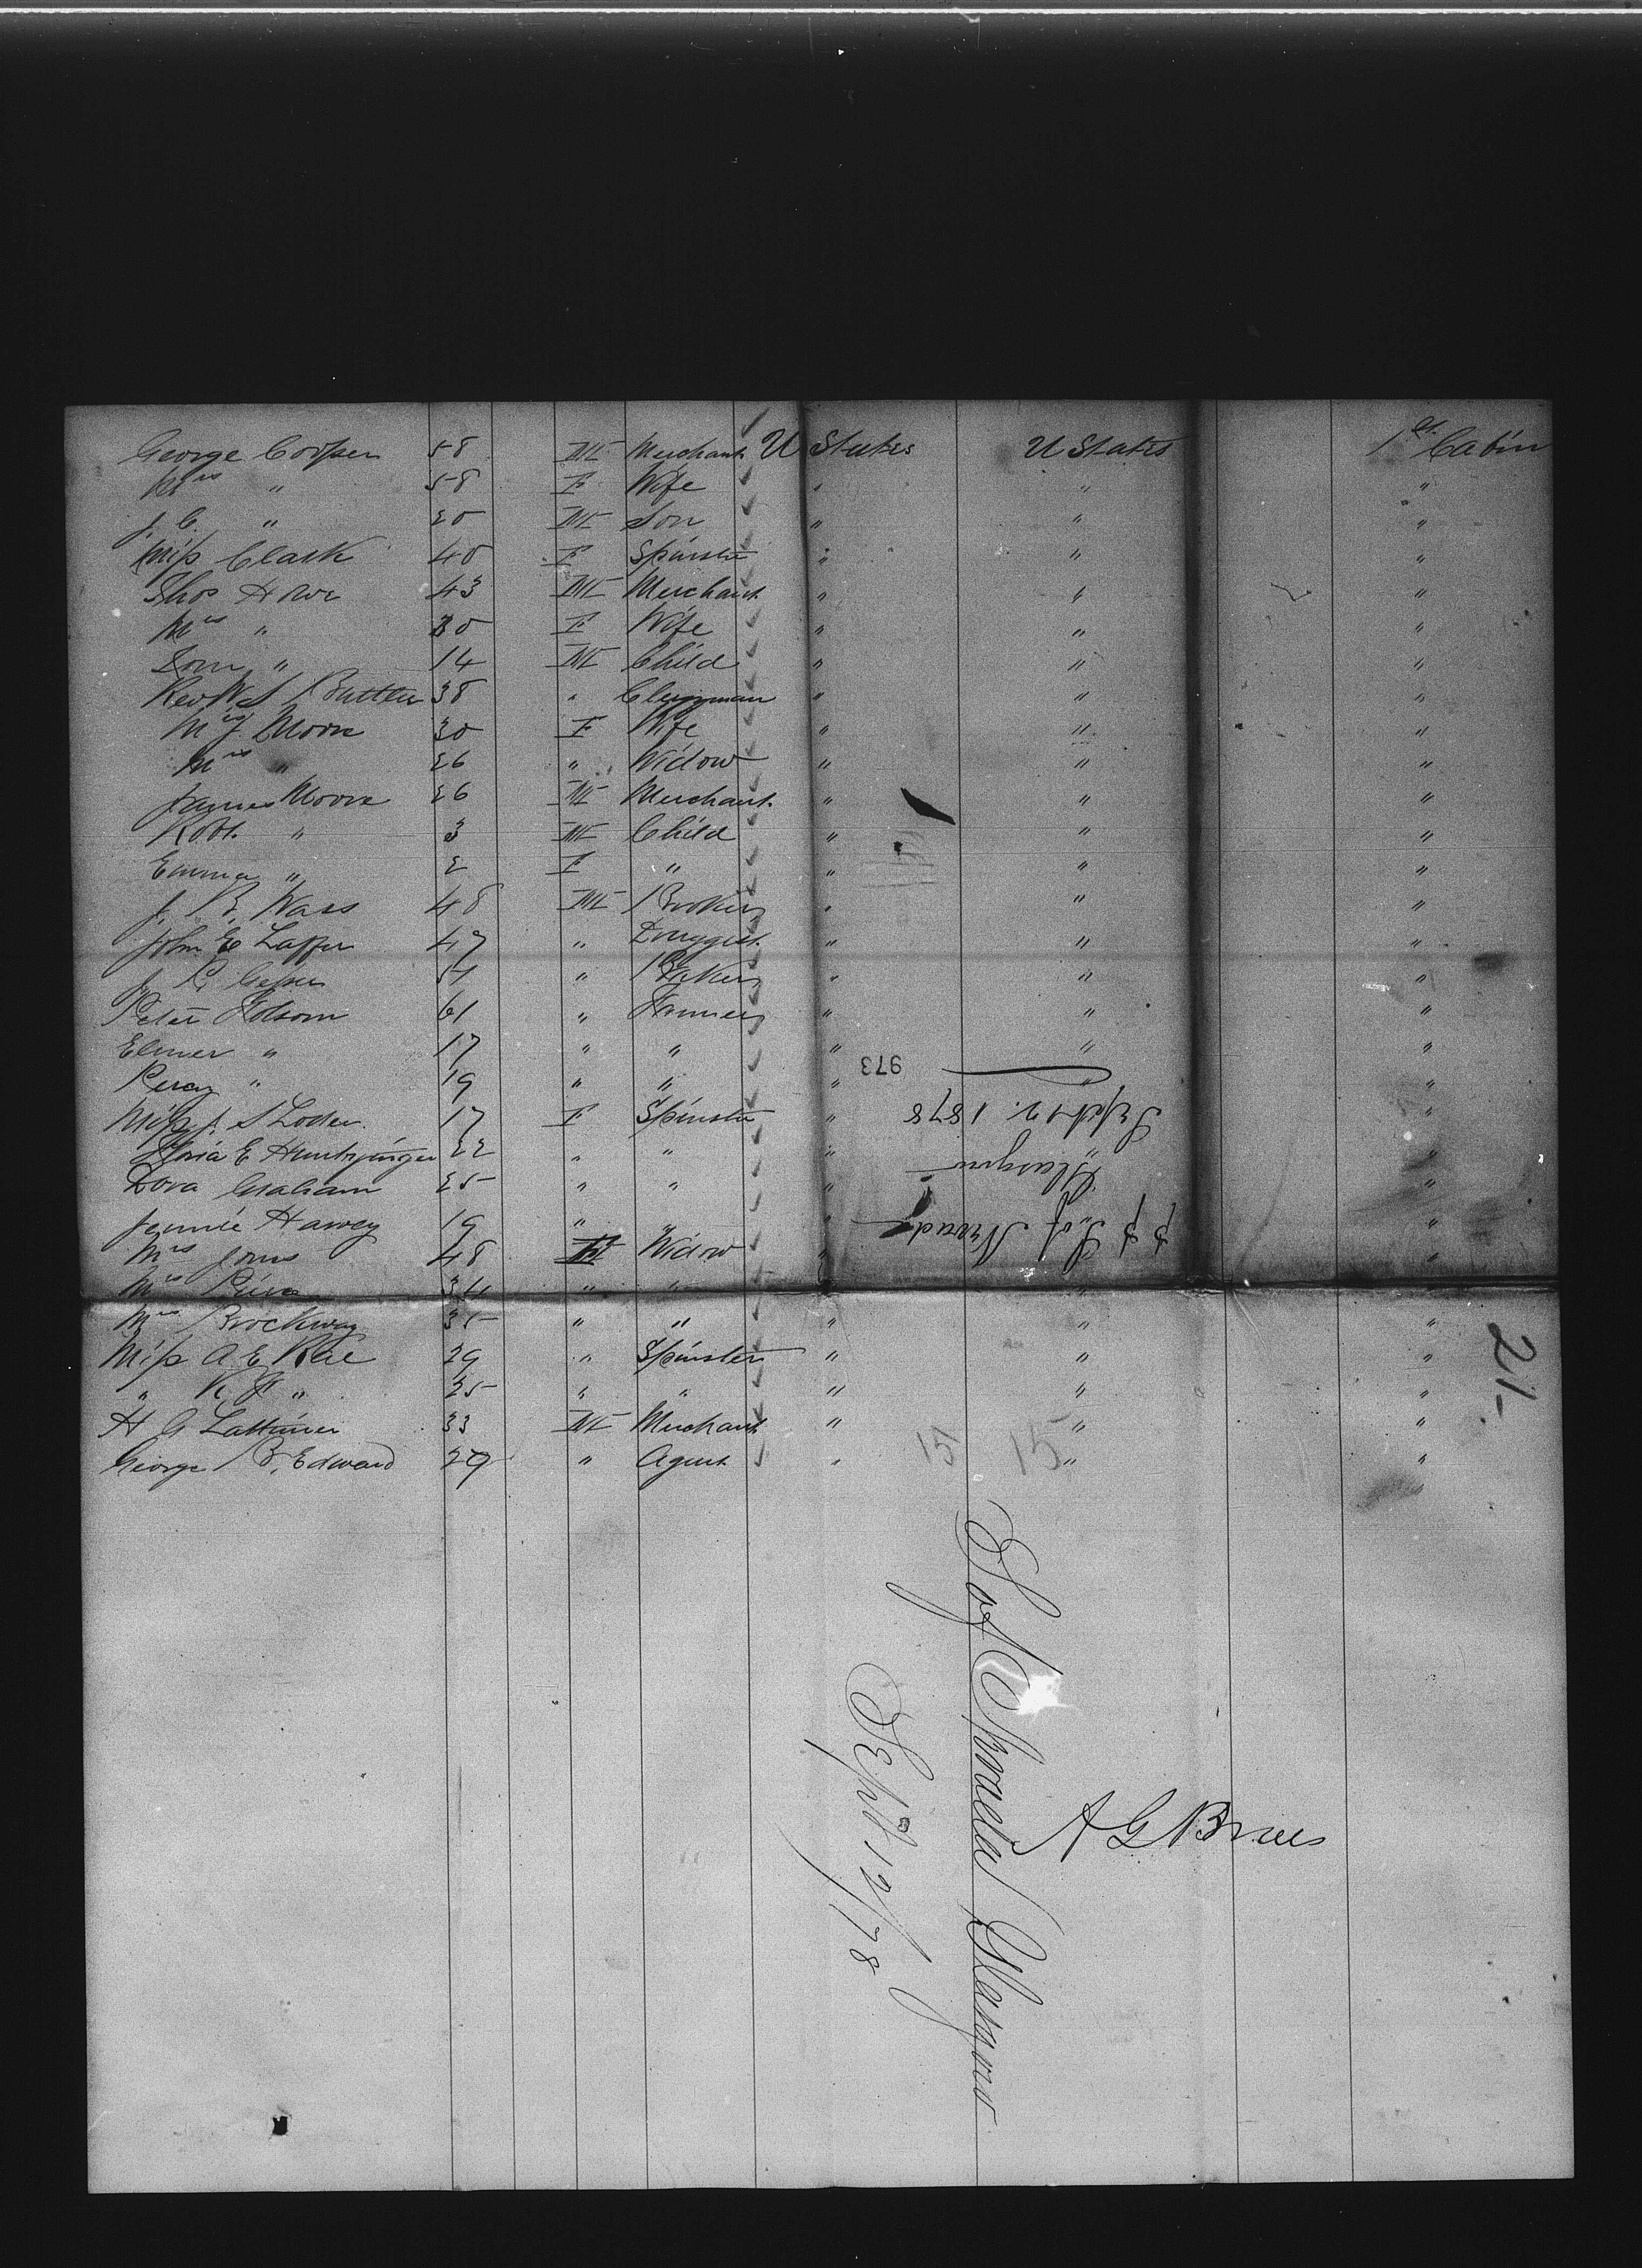 George Cooper 58 M Merchant U States U States 1st Cabin
Mrs " 58 F Wife " " "
J. C. " 20 M Son " " "
Miss Clark 40 F Spinster " " "
Thos H 43 M Merchant " " "
Mrs " 30 F Wife " " "
" 14 M Child " " "
Rev W S 38 " Clergyman " " "
Mrs J. Moore 30 F Wife " " "
Mrs " 26 " Widow " " "
James Moore 26 M Merchant " " "
Robt. " 3 M Child " " "
Emma " 2 F " " " "
J. B. Wass 48 M Broker " " "
John E 47 " Druggist " " "
J. 51 " " " "
Peter Folsom 61 " Farmer " " "
Elmer " 17 " " " " "
Percy " 19 " " " " "
Miss J. S Loder 17 F Spinster " "
E 22 " " " "
Dora Graham 25 " " " "
Jennie Harvey 19 " " " "
Mrs Jones 48 F Widow " "
Mrs 34 " " "
Mrs Brockway 35 " " " " "
Miss A E Rae 29 " Spinster " " "
" K F " 25 " " " " "
H G Lattimer 33 M Merchant " " "
George B. Edward 29 " Agent " " "
973
Sept 12. 1878
Glasgow
pp S. of Nevada
21-
15 15
S of Nevada Glasgow
Sept 12/78
A G Brues